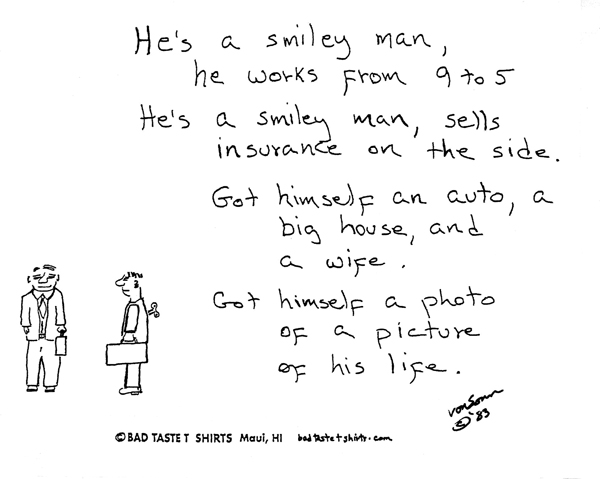 He's a smiley man,
he works from 9 to 5
He's a smiley man, sells
insurance on the side.
Got himself an auto, a
big house, and
a wife.
Got himself a photo
of a picture
of his life.
©'83
© BAD TASTE T SHIRTS Maui, HI badtastetshirts.com